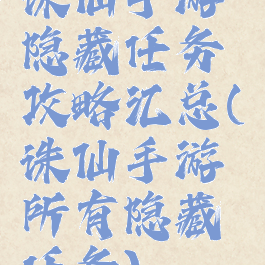 诛仙手游
隐藏任务
攻略汇总(
诛仙手游
所有隐藏
任务)